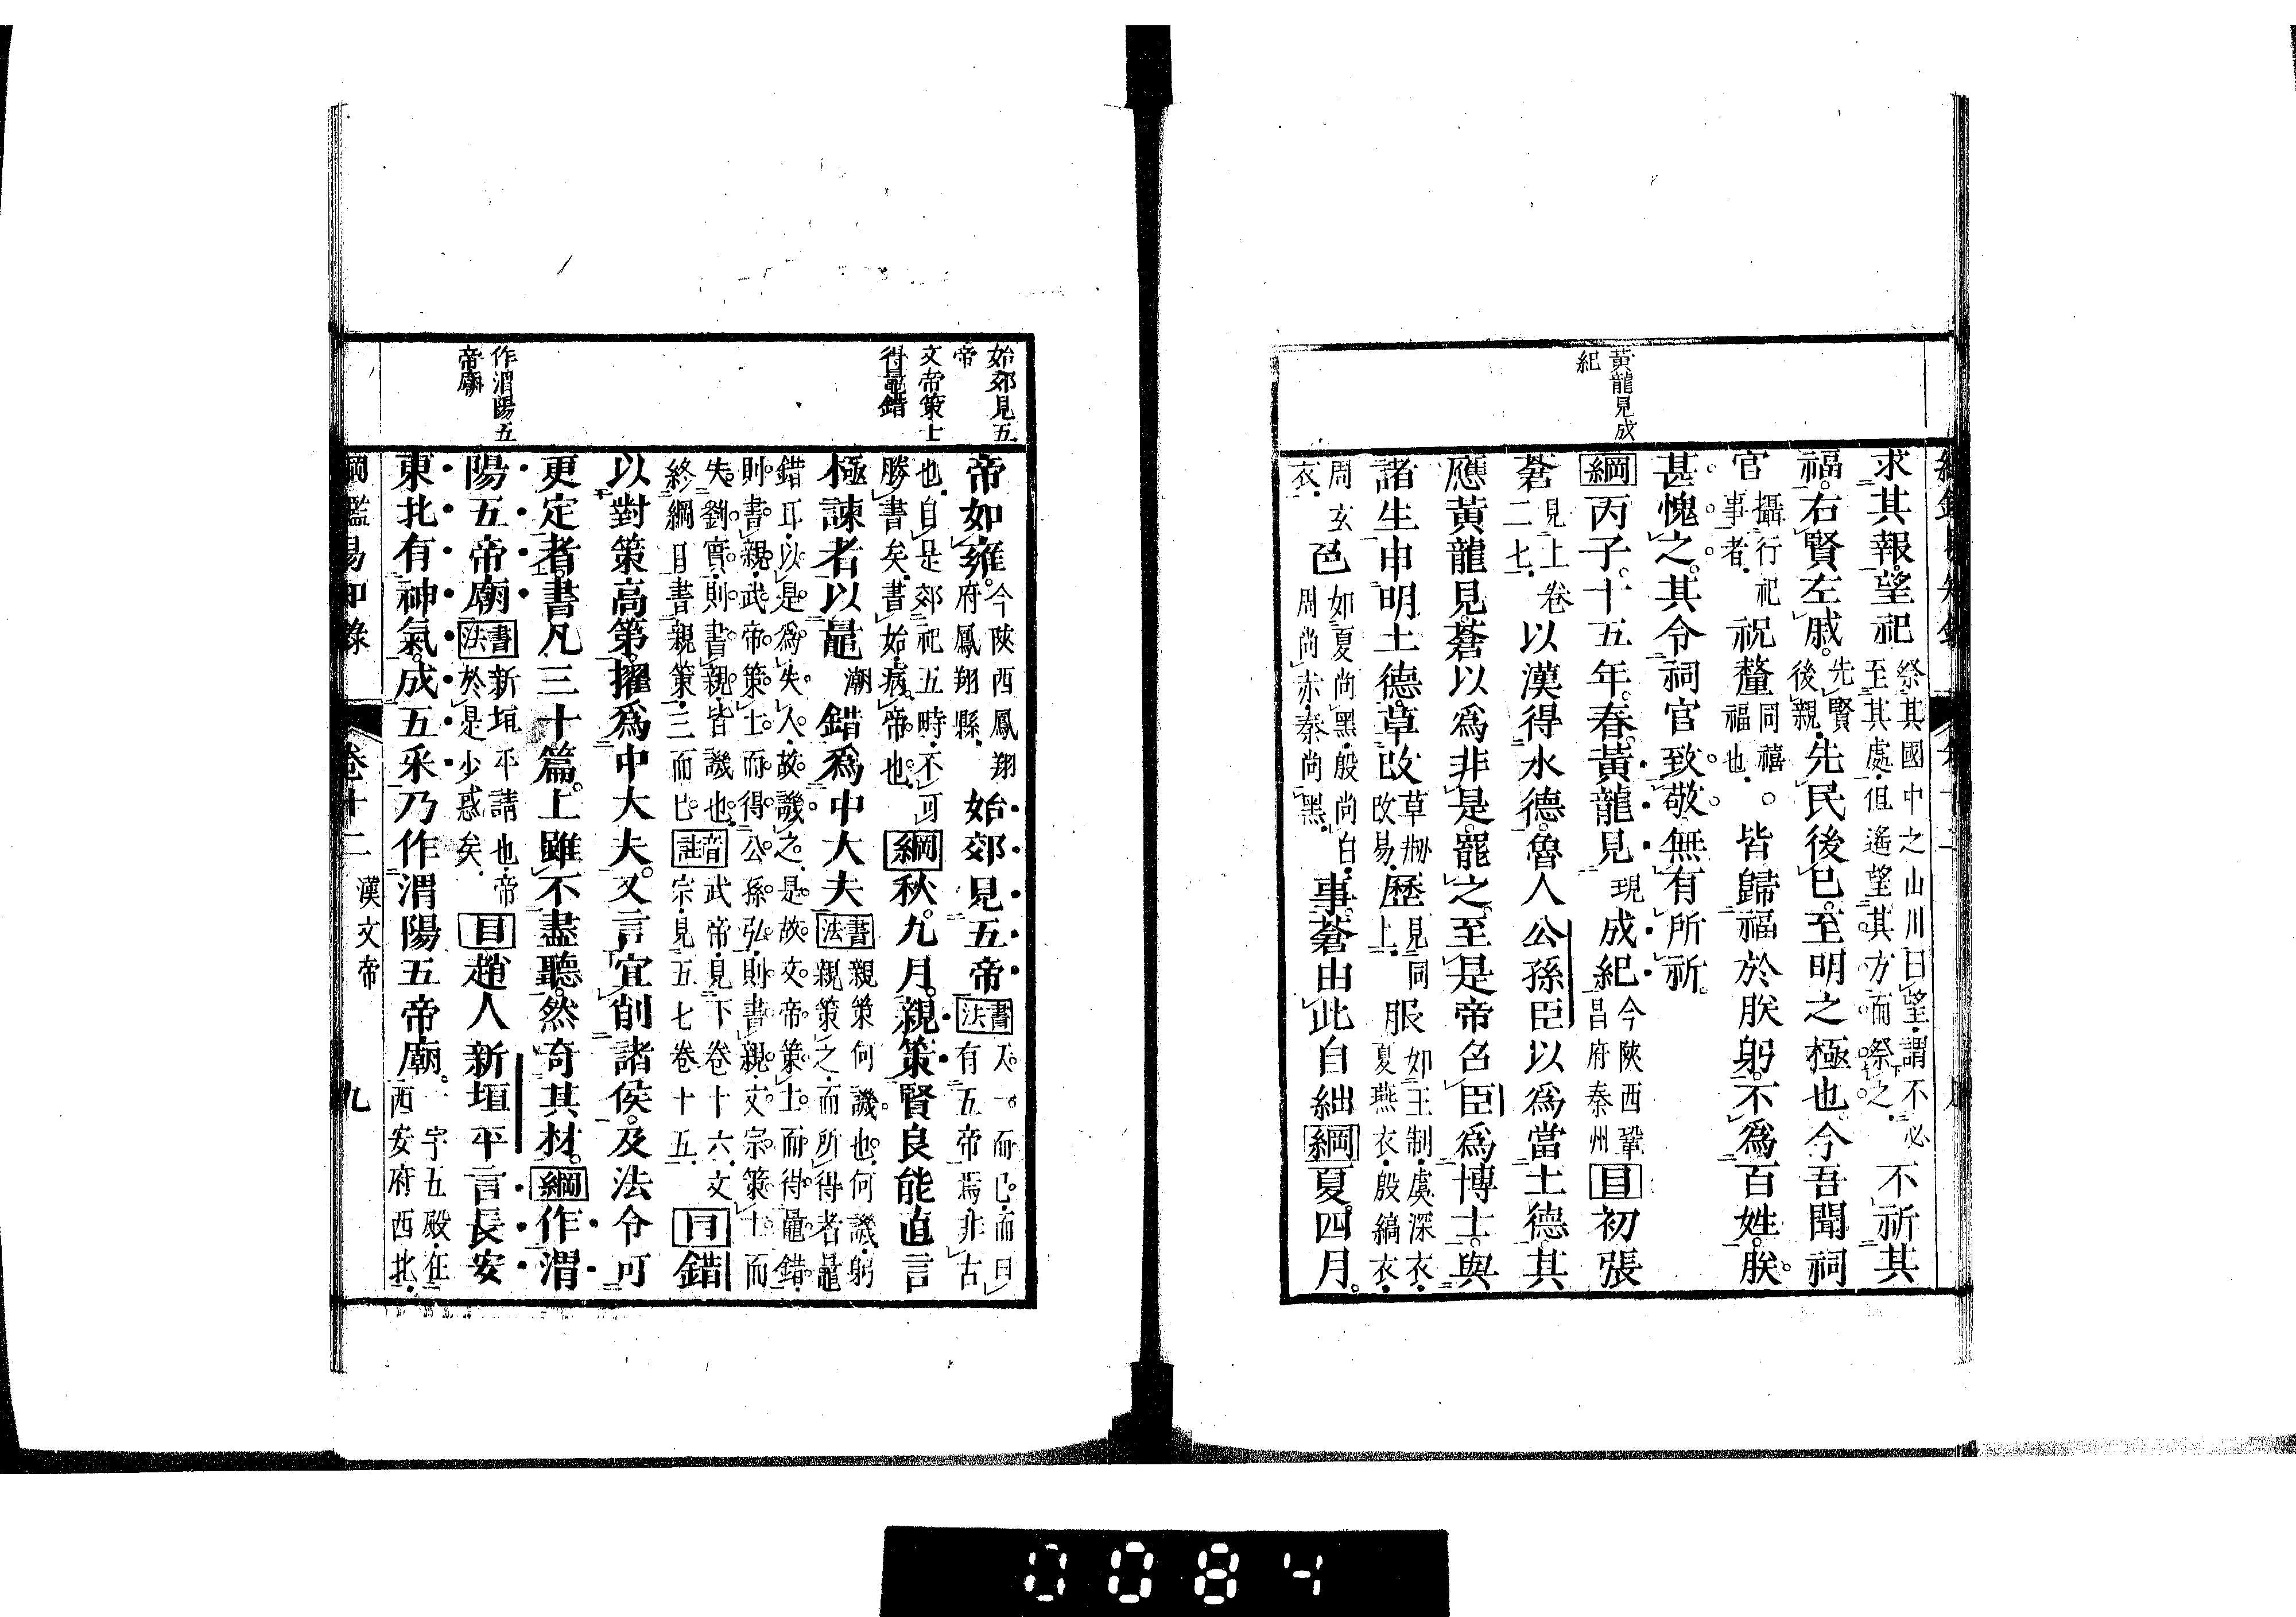 黃龍見成
紀
求其報。望祀祭其國中之山川曰望。謂不必至其處。但遙望其方而祭之。不祈其
福。右賢左戚。先賢後親。先民後已。至明之極也。今吾聞祠
官攝行祀事者。祝釐同禧福也。○皆歸福於朕躬。不爲百姓。朕
甚愧之。其令祠官致敬。無有所祈。
綱丙子。十五年。春。黃龍見現成紀今陝西鞏昌府秦州目初張
蒼見上卷二七。以漢得水德。魯人公孫臣以爲當土德。其
應黃龍見。蒼以爲非是。罷之。至是帝召臣爲博士。與
諸生申明土德。草改草剏改易。歷見同上。服如王制。虞深衣。夏燕衣。殷縞衣。
周玄衣。色如夏尚黑。殷尚白。周尚赤。秦尚黑。事。蒼由此自絀綱夏。四月。
始郊見五
帝
文帝策士
得鼂錯
作渭陽五
帝廟
帝如雍。今陝西鳳翔府鳳翔縣。始郊見五帝書法入一而已。而曰有五帝焉。非古
也。自是郊祀五時。不可勝書矣。書始。病帝也。綱秋。九月。親策賢良能直言
極諫者以鼂潮錯爲中大夫書法親策何。譏也。何譏。躬親策之。而所得者鼂
錯耳。以是爲失人。故譏之。是故文帝策士而得鼂錯。則書親。武帝策士而得公孫弘。則書親。文宗策士而
失劉蕡。則書親。皆譏也。終綱目書親策。三而已音註武帝。見下卷十六。文宗。見五七卷十五。目錯
以對策高第。擢爲中大夫。又言宜削諸侯。及法令可
更定者。書凡三十篇。上雖不盡聽。然奇其材。綱作渭
陽五帝廟書法新垣平請也。帝於是少惑矣。目趙人新垣平言長安
東北有神氣。成五采乃作渭陽五帝廟。一宇五殿。在西安府西北。
綱鑑易知錄 卷十二 漢文帝 九
0084